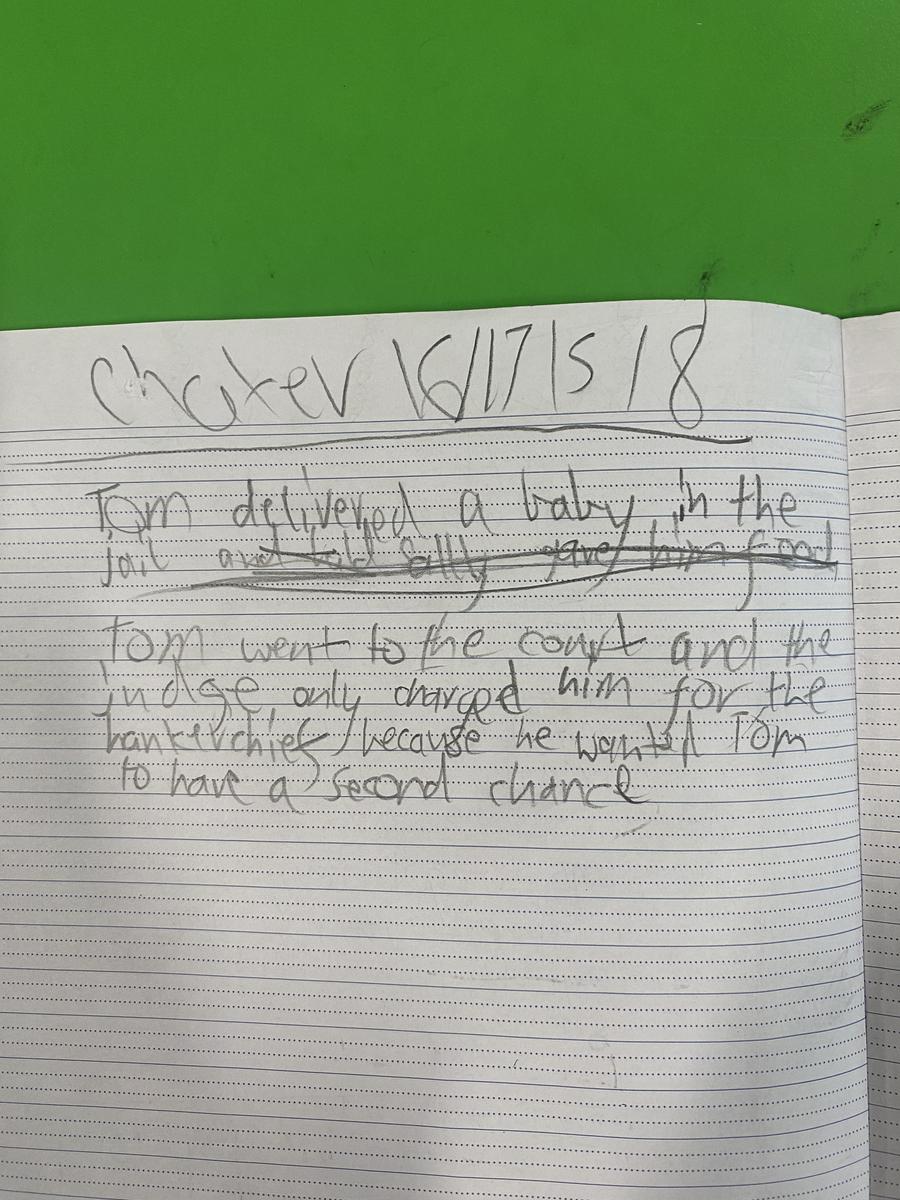 Chapter 16/17/5/8
Tom delivered a baby in the
jail and told Sally gave him food
Tom went to the court and the
judge only charged him for the
hankerchief because he wanted Tom
to have a second chance